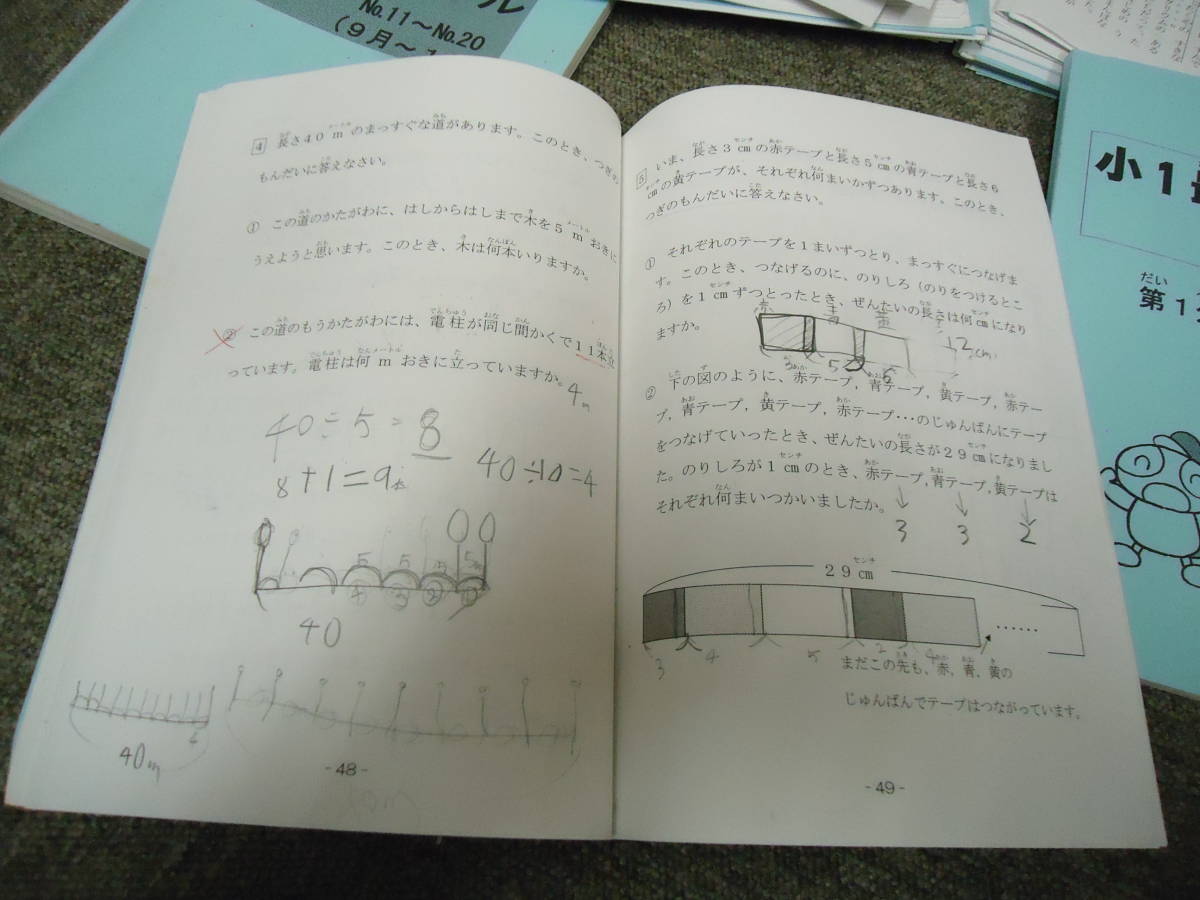 ル
No.11～No.20
（9月～1
小1
だい
第1
4 長さ40mのまっすぐな道があります。このとき、つぎの
もんだいに答えなさい。
① この道のかたがわに、はしからはしまで木を5mおきに
うえようと思います。このとき、木は何本いりますか。
② この道のもうかたがわには、電柱が同じ間かくで11本立
っています。電柱は何mおきに立っていますか。
4m
40÷5=8
8+1=9本
40÷10=4
5 5 5 5
④ ③ ② ①
40
40m
-48-
5 いま、長さ3cmの赤テープと長さ5cmの青テープと長さ6
cmの黄テープが、それぞれ何まいかずつあります。このとき、
つぎのもんだいに答えなさい。
① それぞれのテープを1まいずつとり、まっすぐにつなげま
す。このとき、つなげるのに、のりしろ（のりをつけるとこ
ろ）を1cmずつとったとき、ぜんたいの長さは何cmになり
ますか。
赤 青 黄
12cm
3 5 6
② 下の図のように、赤テープ，青テープ，黄テープ，赤テー
プ，青テープ，黄テープ，赤テープ…のじゅんばんにテープ
をつなげていったとき、ぜんたいの長さが29cmになりまし
た。のりしろが1cmのとき、赤テープ，青テープ，黄テープは
それぞれ何まいつかいましたか。
3 3 2
29cm
3 4 5 2 4
まだこの先も、赤，青，黄の
じゅんばんでテープはつながっています。
-49-